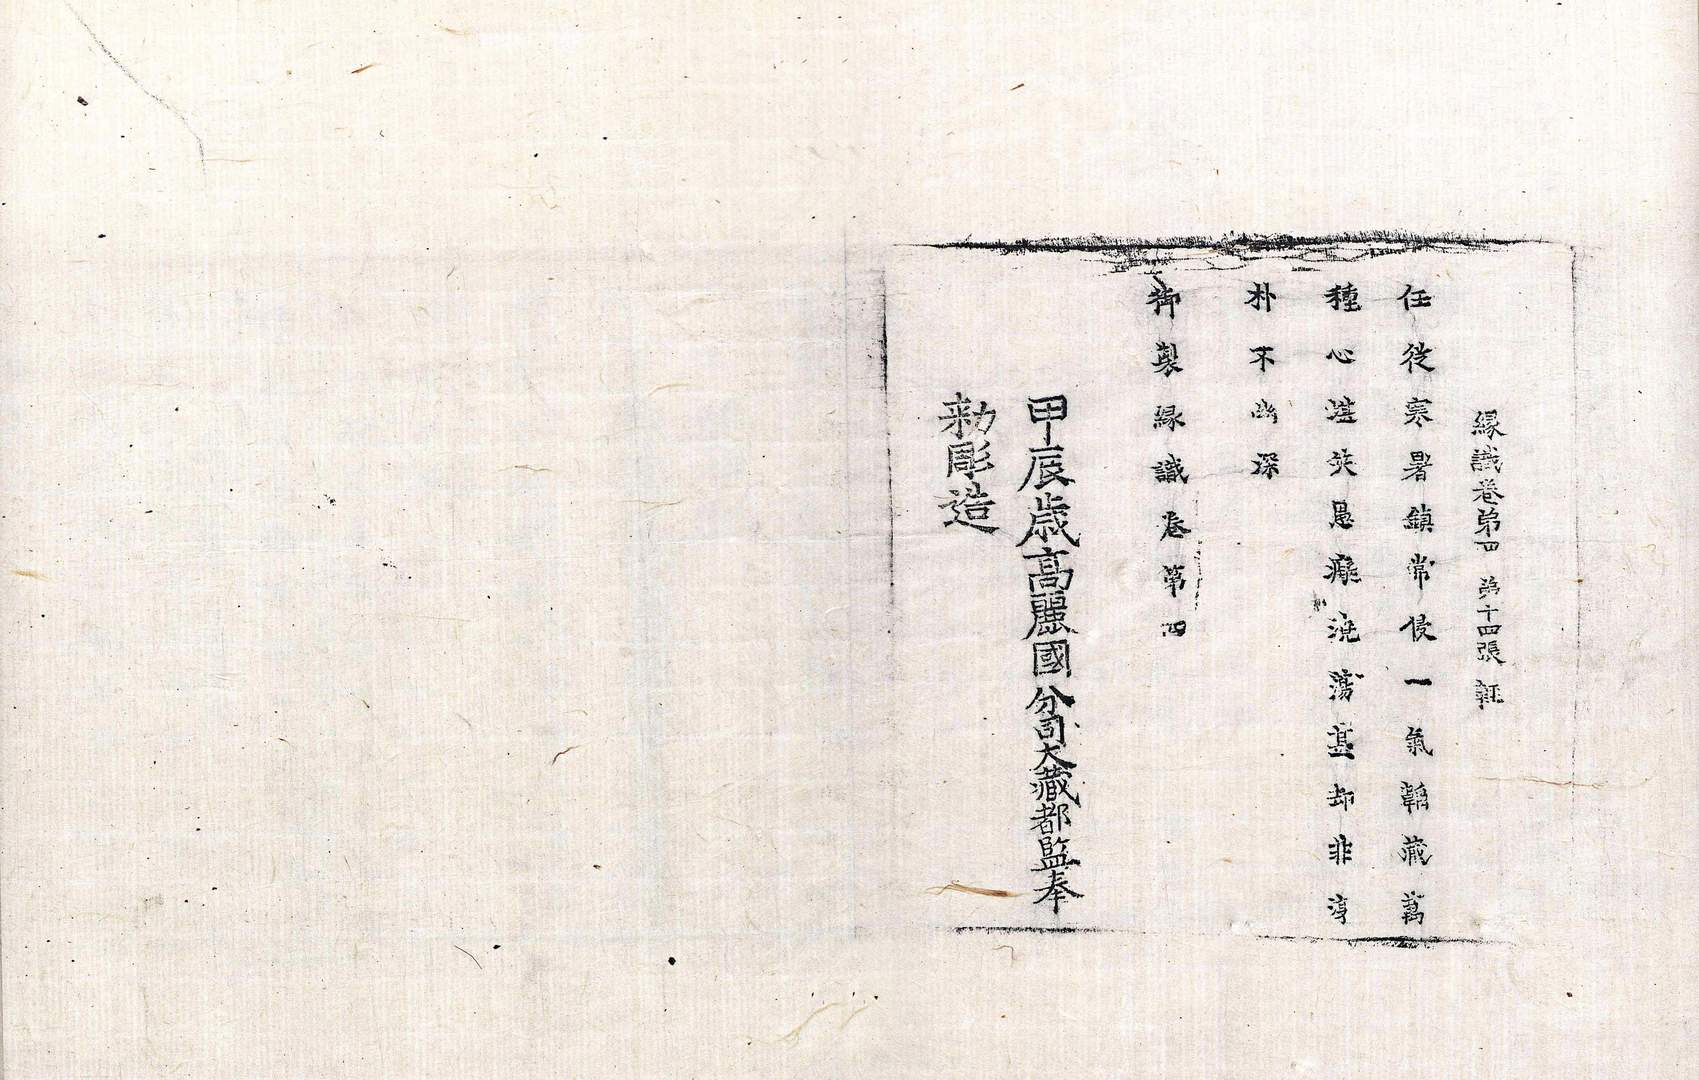 緣識卷第四 第十四張 輕
任從寒暑鎮常侵一氣韜藏萬
種心堪笑愚癡澆蕩甚却非淳
朴不幽深
御製緣識卷第四
甲辰歲高麗國分司大藏都監奉
勑彫造